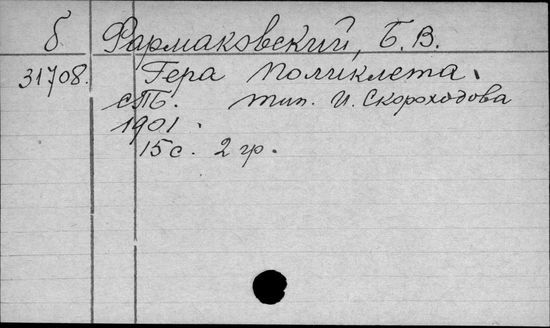 б Фармаковский, Б.В.
31708. Гера Поликлета.
СПБ. тип. И. Скороходова
1901.
15 с. 2 гр.